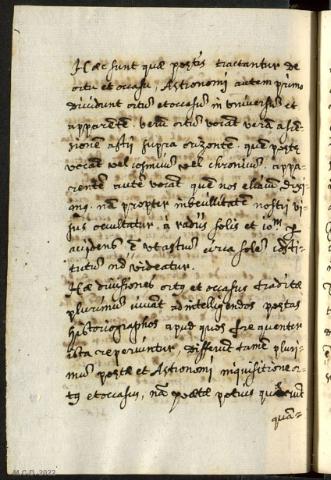 Hæc sunt quæ poetis tractantur de
ortu et occasu, Astronomi autem primo
diuidunt ortũ et occasũ in uniuersũ et
apparentẽ. verũ ortũ vocãt verã ascẽ-
sionem astri supra orizontẽ. quẽ poetæ
vocãt vel cosmicũ vel chronicũ. appa-
rentẽ autẽ vocãt quẽ nos eliacũ dixi-
mꝰ. nã propter imbecillitatẽ nostri vi-
sus occultatur. à radiis solis et
accidens ẽ ut astrũ circa solẽ cõsti-
tutũ nõ videatur.
Hæ divisiones ortꝰ et occasus traditæ
plurimũ iuuãt ad intelligendos poetas
historiographos apud quos frequenter
ista reperiuntur, differunt tamẽ pluri-
mũ poetæ et Astronomi in quisitione or-
tꝰ et occasus, nã poetæ potius quærũt
quã-
M.C.D. 2022